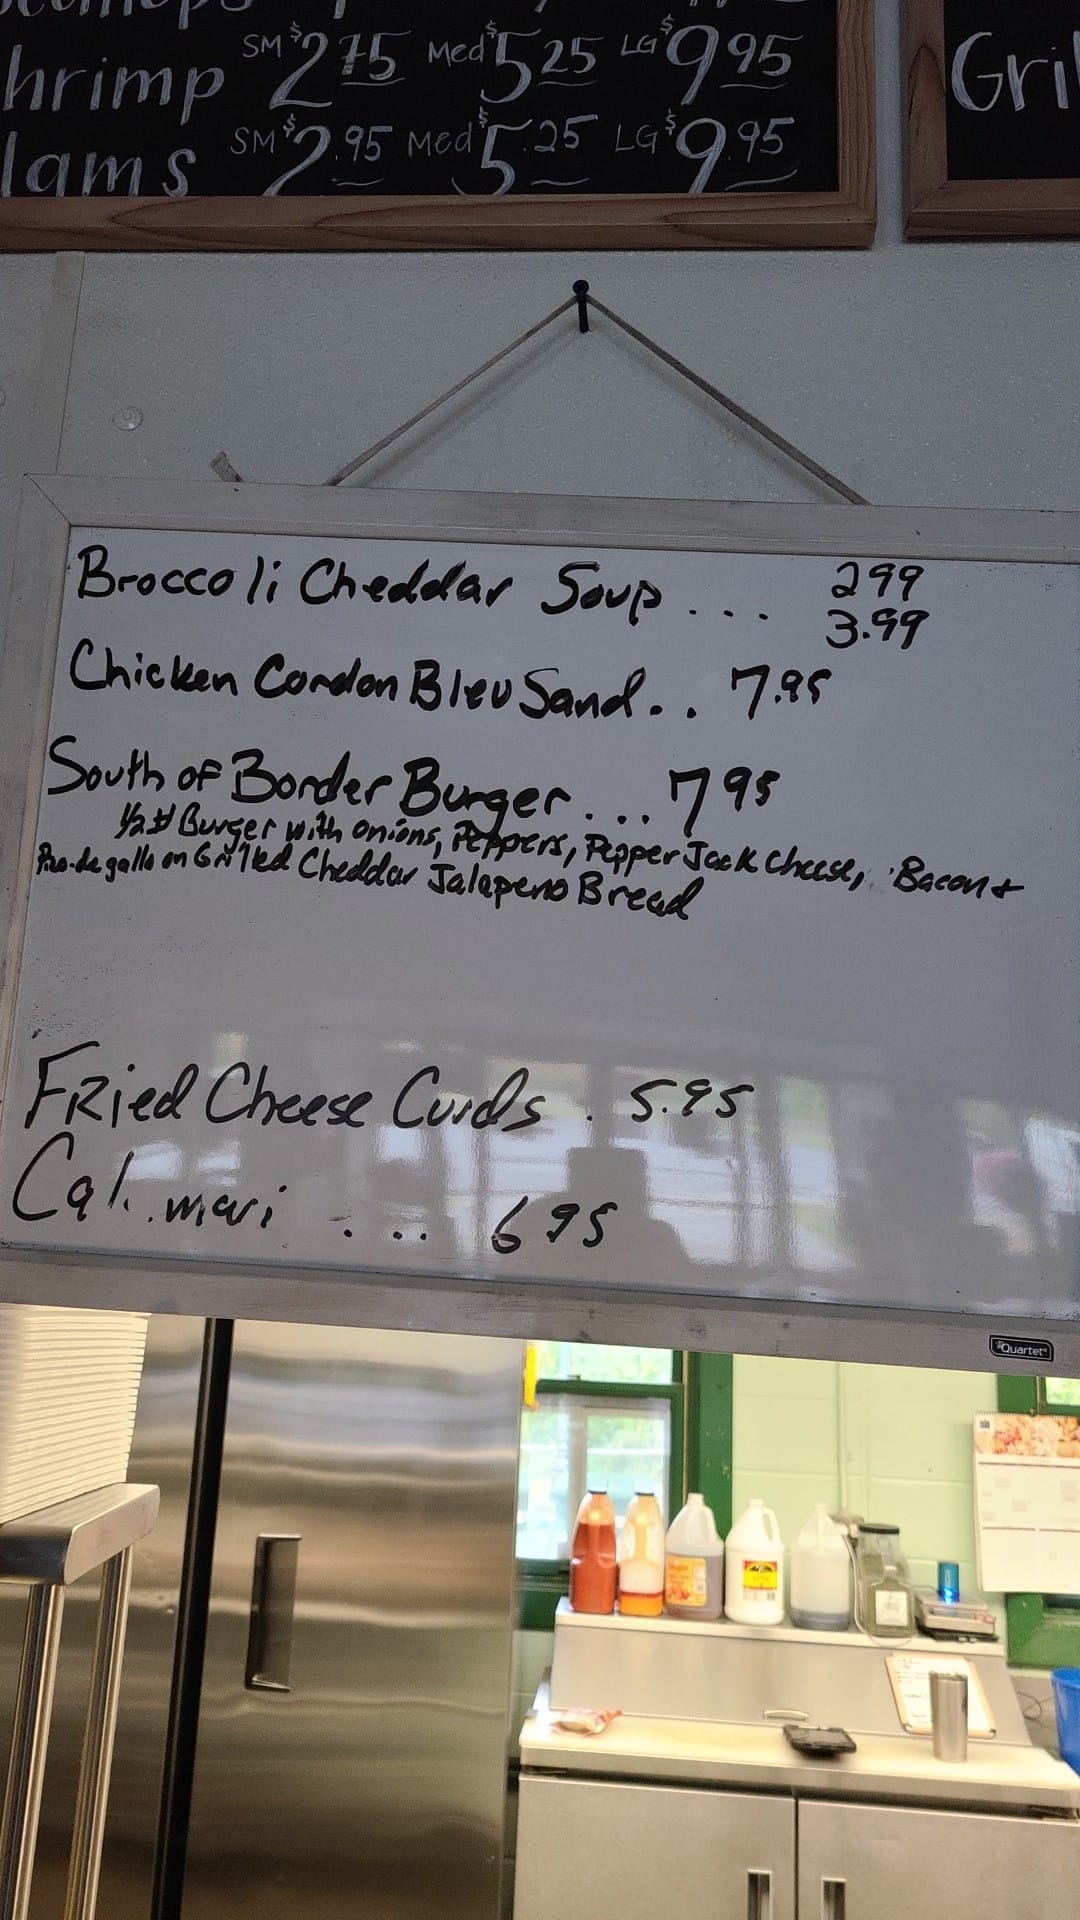 hrimp SM $2.75 Med $5.25 LG $9.95
lams SM $2.95 Med $5.25 LG $9.95
Gri
Broccoli Cheddar Soup ... 299
3.99
Chicken Cordon Bleu Sand.. 7.95
South of Border Burger ... 795
1/2 # Burger with onions, Peppers, Pepper Jack Cheese, Bacon +
Pico-de gallo on Grilled Cheddar Jalapeno Bread
Fried Cheese Curds . 5.95
Cal..mari . ... 695
Quartet